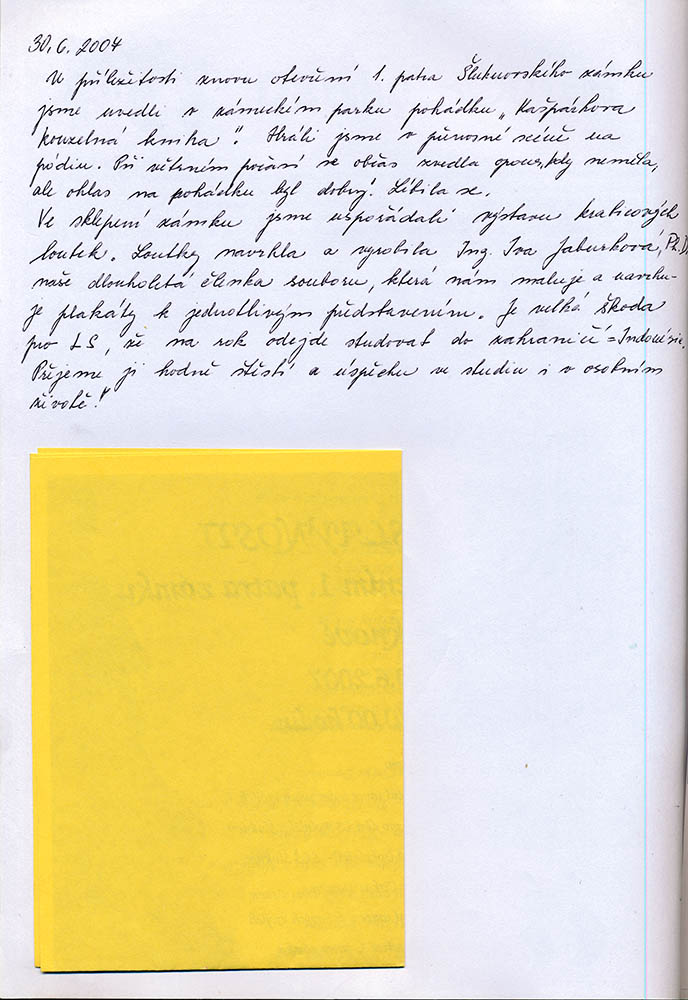 30. 6. 2007
U příležitosti znovu otevření 1. patra Šluknovského zámku
jsme uvedli v zámeckém parku pohádku „Kašpárkova
kouzelná kniha". Hráli jsme v přenosné scéně na
pódiu. Při větrném počasí se občas zvedla opona, kdy neměla,
ale ohlas na pohádku byl dobrý. Líbila se.
Ve sklepení zámku jsme uspořádali výstavu krabicových
loutek. Loutky navrhla a vyrobila Ing. Iva Jaburková, Ph.D,
naše dlouholetá členka souboru, která nám maluje a navrhu-
je plakáty k jednotlivým představením. Je velká škoda
pro LS, že na rok odejde studovat do zahraničí = Indonésie.
Přejeme jí hodně štěstí a úspěchu ve studiu i v osobním
životě!